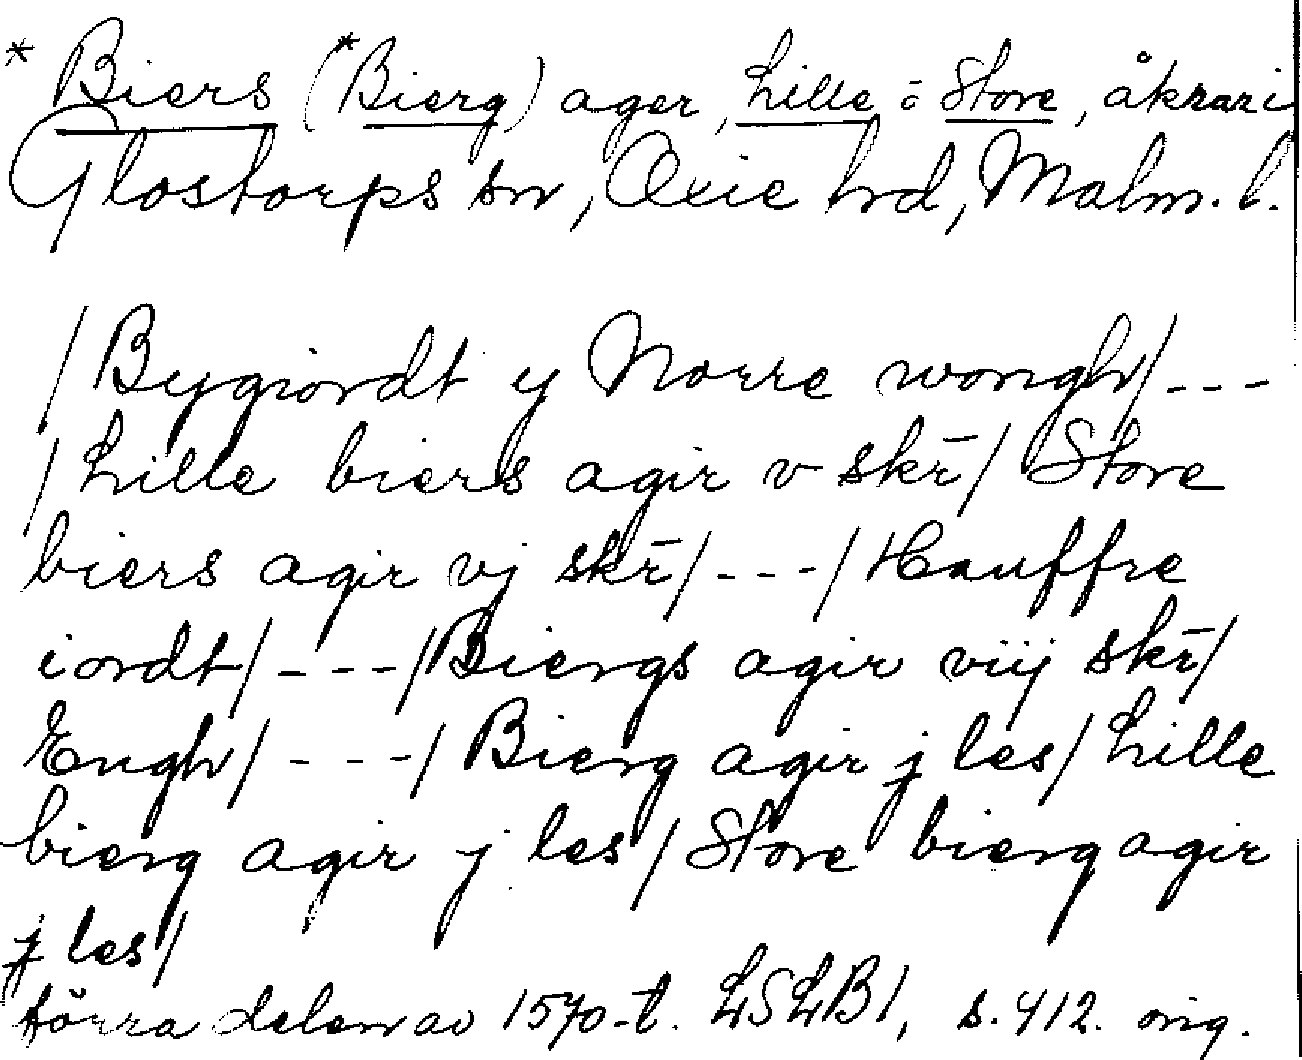 * Biers (*Bierg) ager, Lille o Store, åkrar i
Glostorps sn, Oxie hd, Malm. l.
/Bygiordt y Norre wongh/---
/Lille biers agir v skr̄/ Store
biers agir vj skr̄/---/Hauffre
iordt/---/Biergs agir viij skr̄/
Engh/---/ Bierg agir j les/ Lille
bierg agir j les/ Store bierg agir
j les/
förra delen av 1570-t. LSLB1, s. 412. orig.